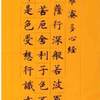 多心經
薩行深般若波羅
苦厄舍利子色不
是色受想行識亦